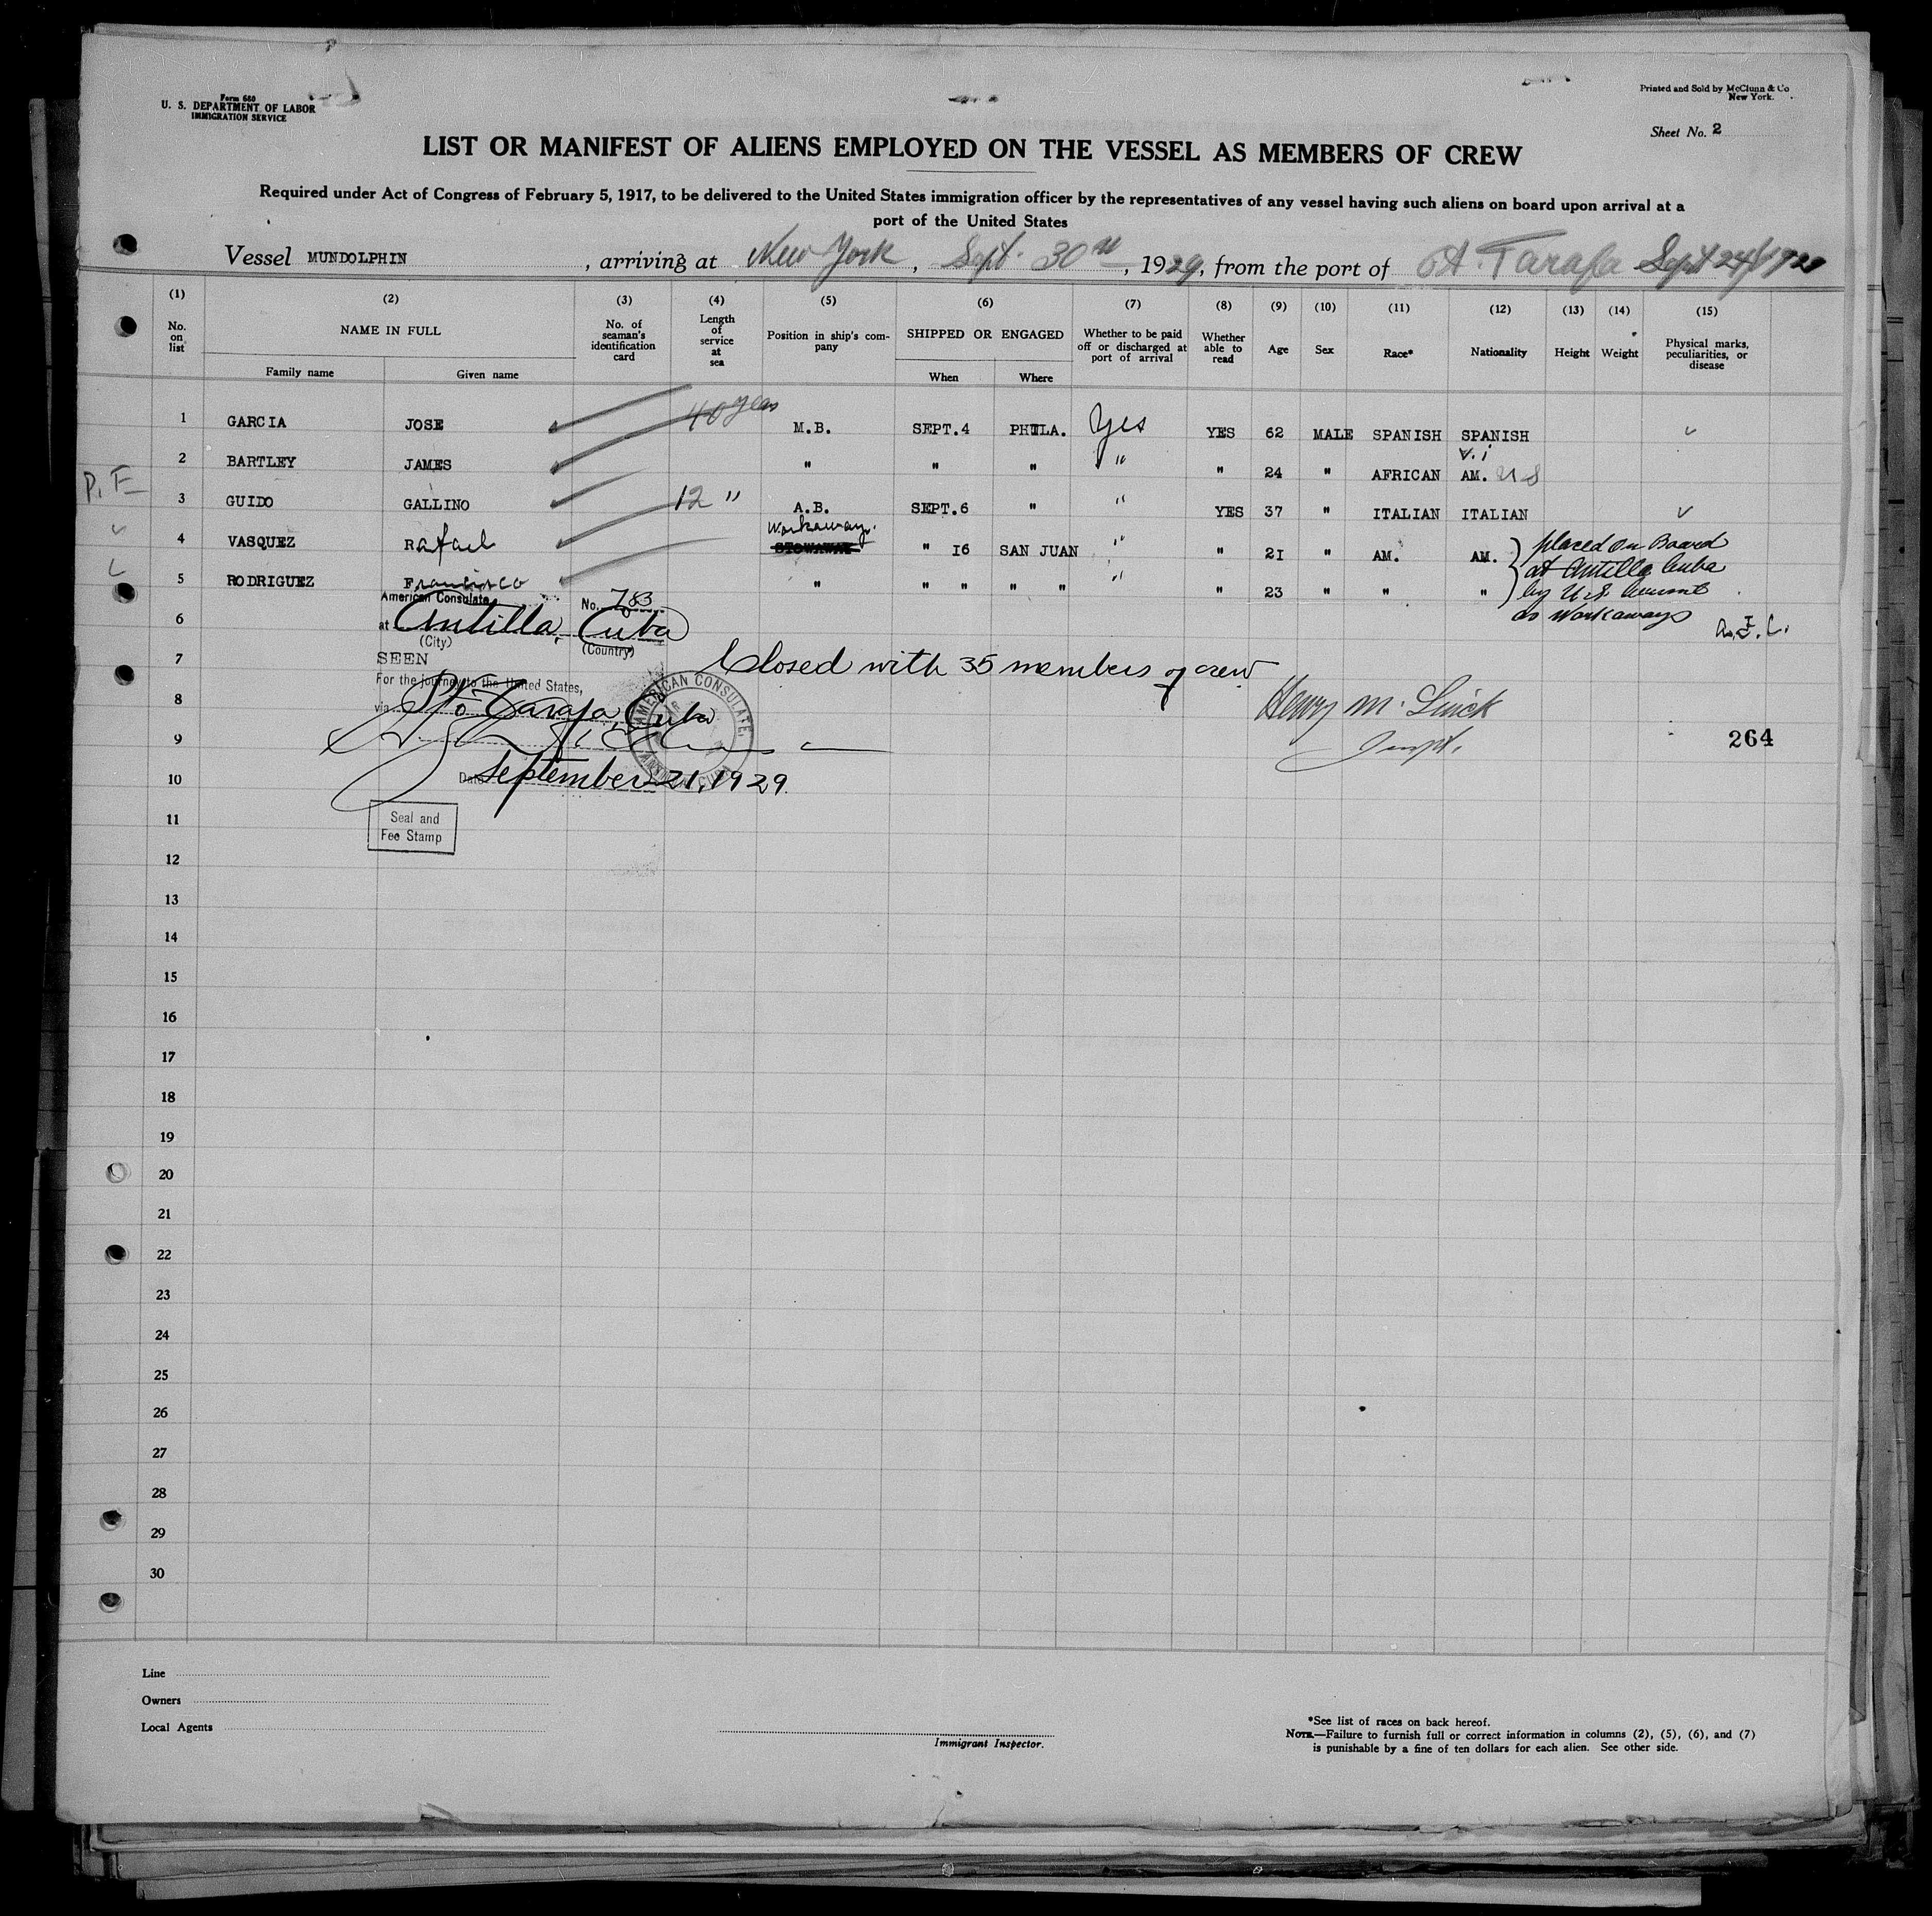 Form 680
U. S. DEPARTMENT OF LABOR
IMMIGRATION SERVICE
Printed and Sold by McClunn & Co
New York.
Sheet No. 2
LIST OR MANIFEST OF ALIENS EMPLOYED ON THE VESSEL AS MEMBERS OF CREW
Required under Act of Congress of February 5, 1917, to be delivered to the United States immigration officer by the representatives of any vessel having such aliens on board upon arrival at a
port of the United States
Vessel MUNDOLPHIN, arriving at New York, Sept. 30th, 1929, from the port of Tarafa Sept 24th 1929
(1) (2) (3) (4) (5) (6) (7) (8) (9) (10) (11) (12) (13) (14) (15)
No. on list NAME IN FULL No. of seaman's identification card Length of service at sea Position in ship's company SHIPPED OR ENGAGED Whether to be paid off or discharged at port of arrival Whether able to read Age Sex Race* Nationality Height Weight Physical marks, peculiarities, or disease
Family name Given name When Where
1 GARCIA JOSE 40 years M.B. SEPT.4 PHILA. Yes YES 62 MALE SPANISH SPANISH
V.i
2 BARTLEY JAMES " " " " " 24 " AFRICAN AM. US
P.F. 3 GUIDO GALLINO 12 " A.B. SEPT.6 " " YES 37 " ITALIAN ITALIAN
Workaway.
4 VASQUEZ Rafael STOWAWAY " 16 SAN JUAN " " 21 " AM. AM. placed on Board
at Antilla Cuba
5 RODRIGUEZ Francisco " " " " " " " 23 " " " by U.S.
as workaways
American Consulate No. 783
6 at Antilla, Cuba
(City) (Country)
7 SEEN
Closed with 35 members of crew
For the journey to the United States,
8 via Pto Tarafa, Cuba
AMERICAN CONSULATE,
Henry M.
9 Inspt.
264
10 Date September 21, 1929.
11 Seal and
Fee Stamp
12
13
14
15
16
17
18
19
20
21
22
23
24
25
26
27
28
29
30
Line
Owners
Local Agents
Immigrant Inspector.
*See list of races on back hereof.
NOTE.—Failure to furnish full or correct information in columns (2), (5), (6), and (7)
is punishable by a fine of ten dollars for each alien. See other side.